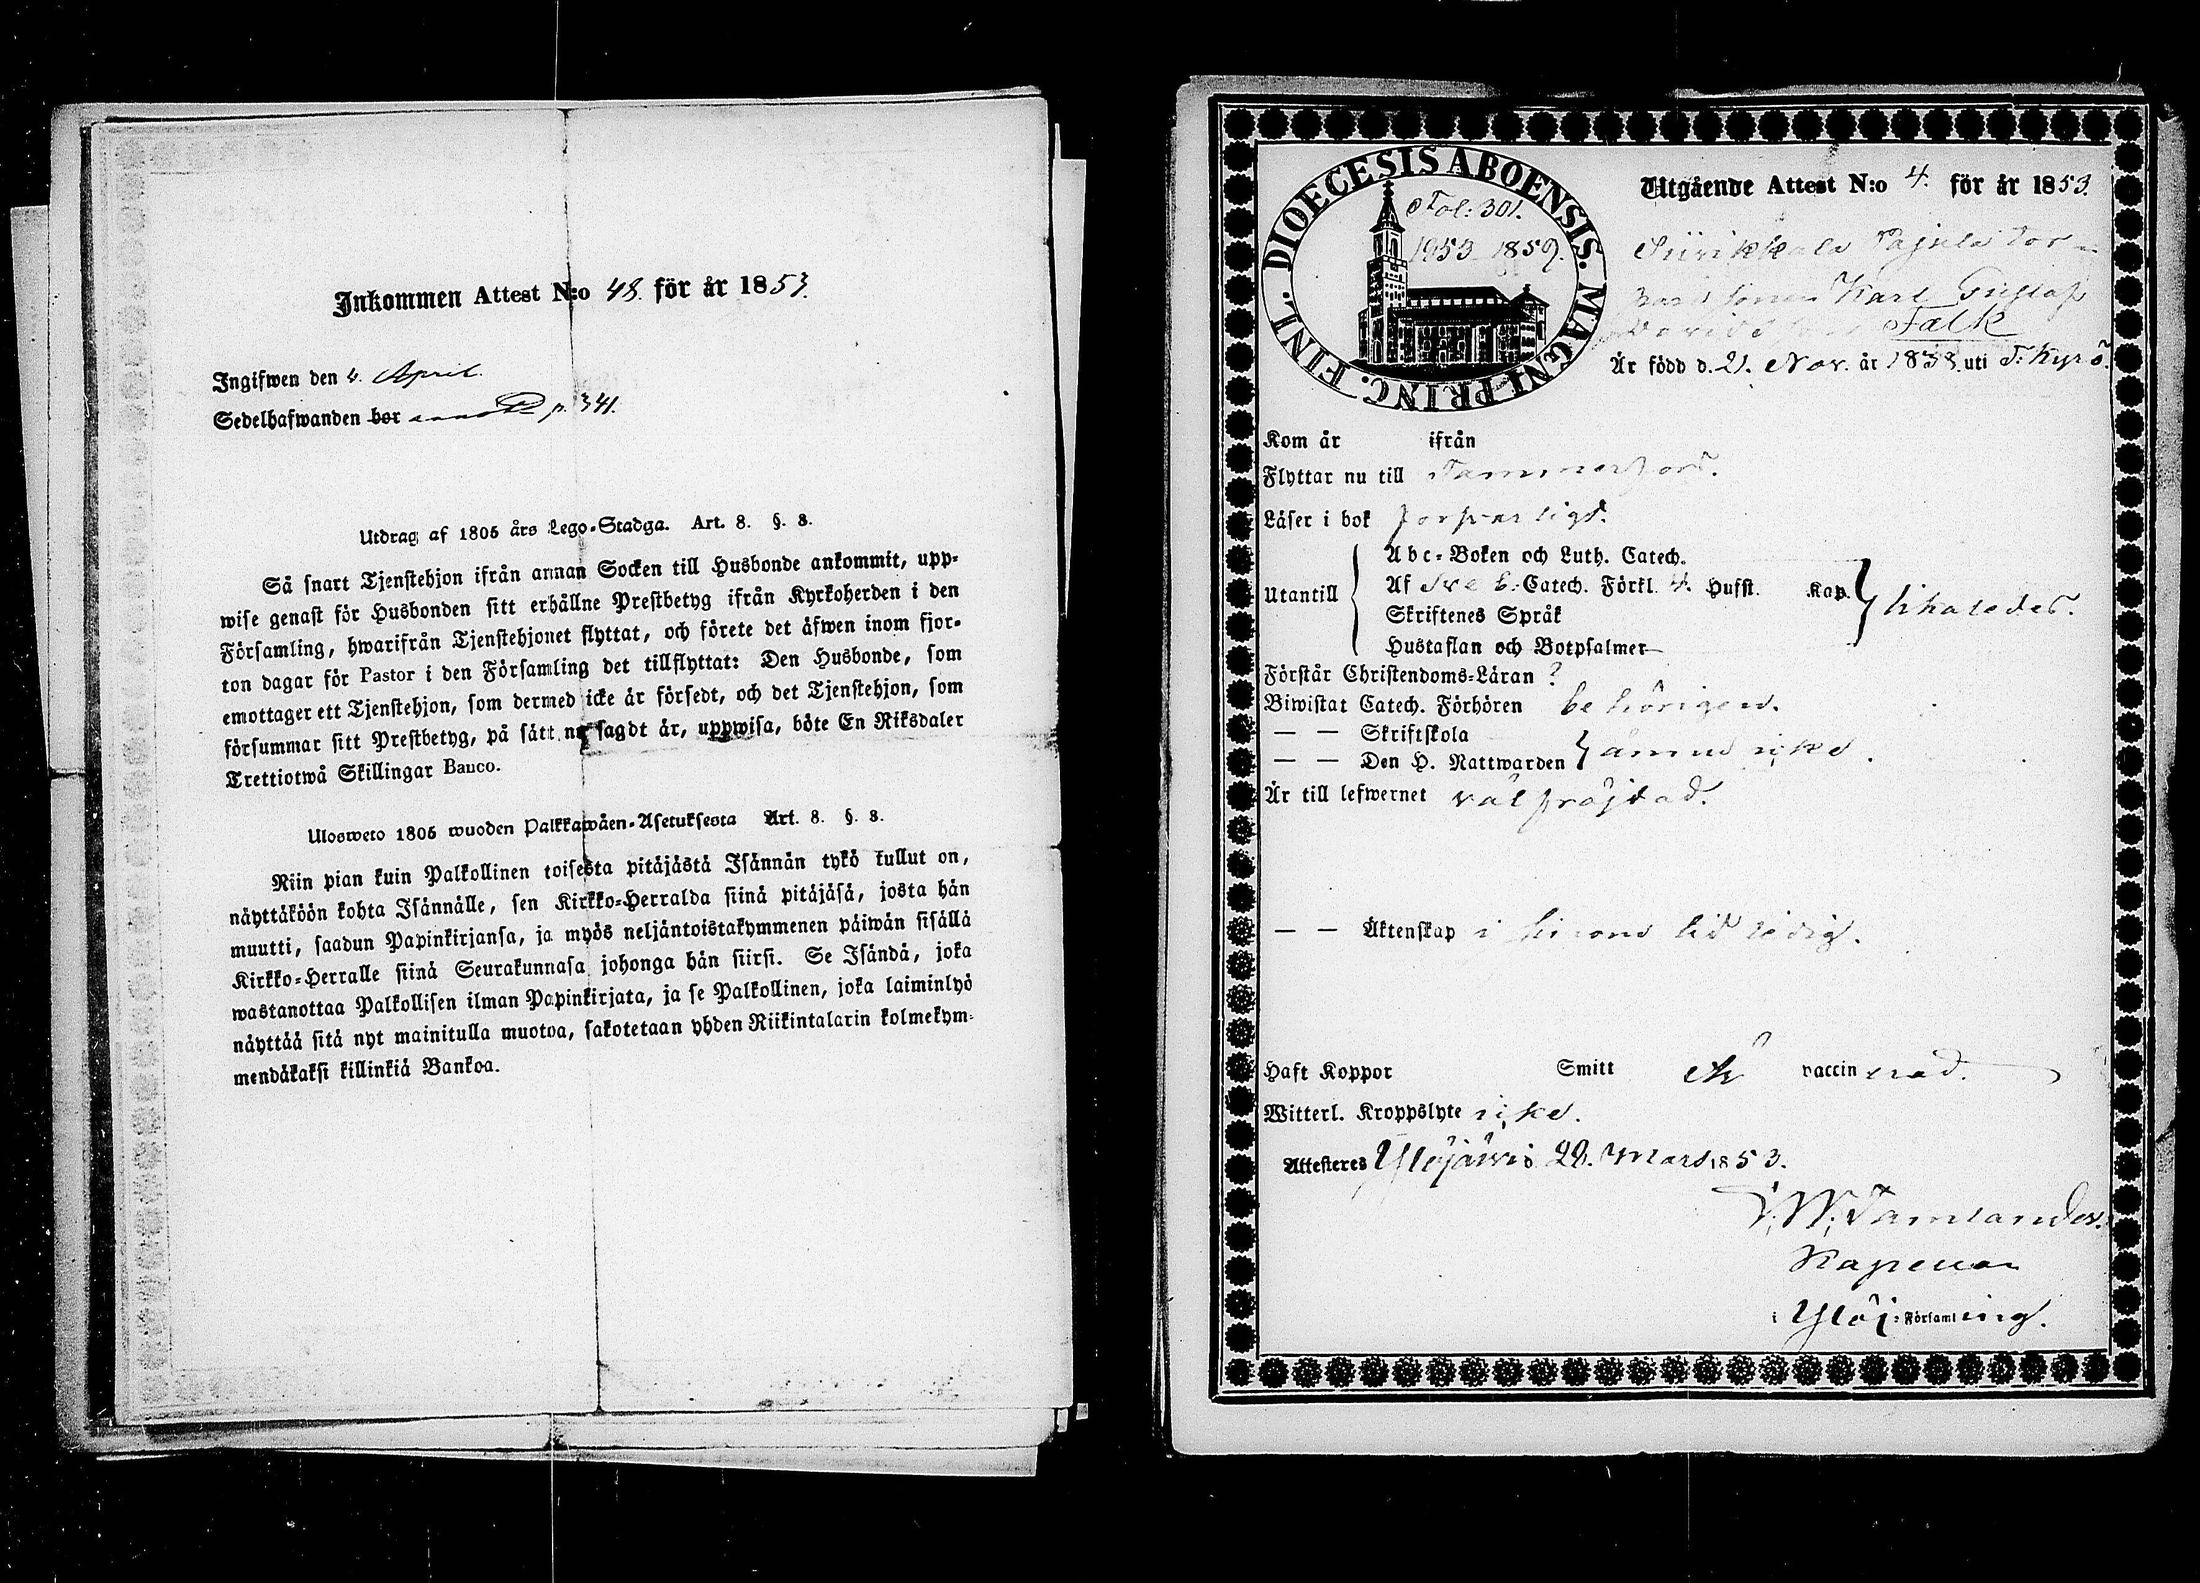 Inkommen Attest N:o 48. för år 1853.
Ingifwen den 4. April.
Sedelhafwanden bor p. 341.
Utdrag af 1805 års Lego-Stadga. Art. 8. §. 8.
Så snart Tjenstehjon ifrån annan Socken till Husbonde ankommit, upp-
wise genast för Husbonden sitt erhållne Prestbetyg ifrån Kyrkoherden i den
Församling, hwarifrån Tjenstehjonet flyttat, och förete det äfwen inom fjor-
ton dagar för Pastor i den Församling det tillflyttat: Den Husbonde, som
emottager ett Tjenstehjon, som dermed icke är försedt, och det Tjenstehjon, som
försummar sitt Prestbetyg, på sätt nu sagdt är, uppwisa, böte En Riksdaler
Trettiotwå Skillingar Banco.
Ulosweto 1805 wuoden Palkkawäen-Asetuksesta Art. 8. §. 8.
Niin pian kuin Palkollinen toisesta pitäjästä Isännän tykö tullut on,
näyttäköön kohta Isännälle, sen Kirkko-Herralda siinä pitäjäsä, josta hän
muutti, saadun Papinkirjansa, ja myös neljäntoistakymmenen päiwän sisällä
Kirkko-Herralle siinä Seurakunnasa johonga hän siirsi. Se Isändä, joka
wastanottaa Palkollisen ilman Papinkirjata, ja se Palkollinen, joka laiminlyö
näyttää sitä nyt mainitulla muotoa, sakotetaan yhden Riikintalarin kolmekym-
mendäkaksi killinkiä Bankoa.
DIOECESIS ABOENSIS. MAGNI PRINC. FINL.
Fol: 301.
1853–1859.
Utgående Attest N:o 4. för år 1853.
Siivikkala Pajula tor-
pare sonen Karl Gustaf
Davidsson Falk
Är född d. 21. Nov. år 1838. uti T. Kyrö.
Kom år ifrån
Flyttar nu till Tammerfors.
Läser i bok försvarligt.
Utantill
Abc-Boken och Luth. Catech.
Af Sveb: Catech. Förkl. 4. Hufst. Kap.
Skriftenes Språk
Hustaflan och Botpsalmer
likaledes.
Förstår Christendoms-Läran ?
Biwistat Catech. Förhören behörigen.
— — Skriftskola
— — Den H. Nattwarden
ännu icke.
Är till lefwernet väl fräjdad.
— — Äktenskap i hinders tid ledig.
Haft Koppor Smitt Är vaccinerad.
Witterl. Kroppslyte icke.
Attesteres Ylöjärvi 28. Mars 1853.
Kapellan
i Ylöj: Församling.